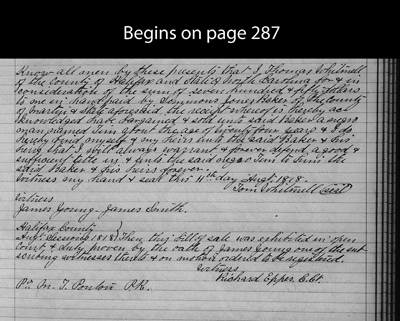 Begins on page 287
Know all men by these presents that I Thomas Whitnell
of the County of Halifax and State of North Carolina for & in
consideration of the sum of seven hundred & fifty dollars
to me in hand paid by Simmons Jones Baker of the County
of Martin & State aforesaid the receipt whereof is hereby ack
knowledged have bargained & sold unto said Baker a negro
man named Jim about the age of twenty four years & I do
hereby bind myself & my heirs unto the said Baker & his
being that I shall always warrant & forever defend a good &
sufficient title in & unto the said negro Jim to him the
said Baker & his heirs forever.
Witness my hand & seal this 11th day Augt. 1818.
Tom Whitnell seal
Witness
James Young - James Smith.
Halifax County }
Aug. Sessions 1818 } Then this bill of sale was exhibited in open
Court & duly proven by the oath of James Young one of the sub-
scribing witnesses thereto & on motion ordered to be registered.
Witness
Richard Eppes C.Ct.
Pr. M. T. Ponton P.R.